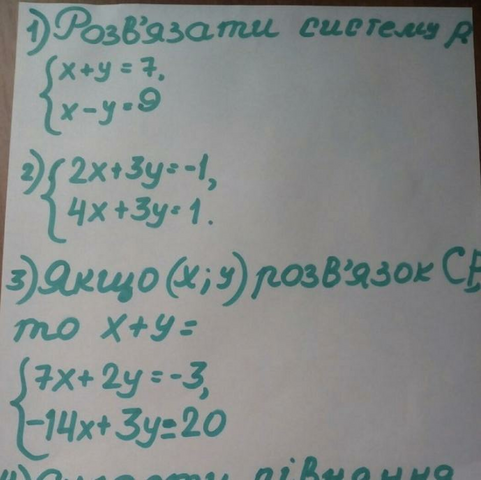 1) Розв'язати систему р
x+y=7,
x-y=9
2) 2x+3y=-1,
4x+3y=1.
3) Якщо (x;y) розв'язок СР
то x+y=
7x+2y=-3,
-14x+3y=20
рівняння